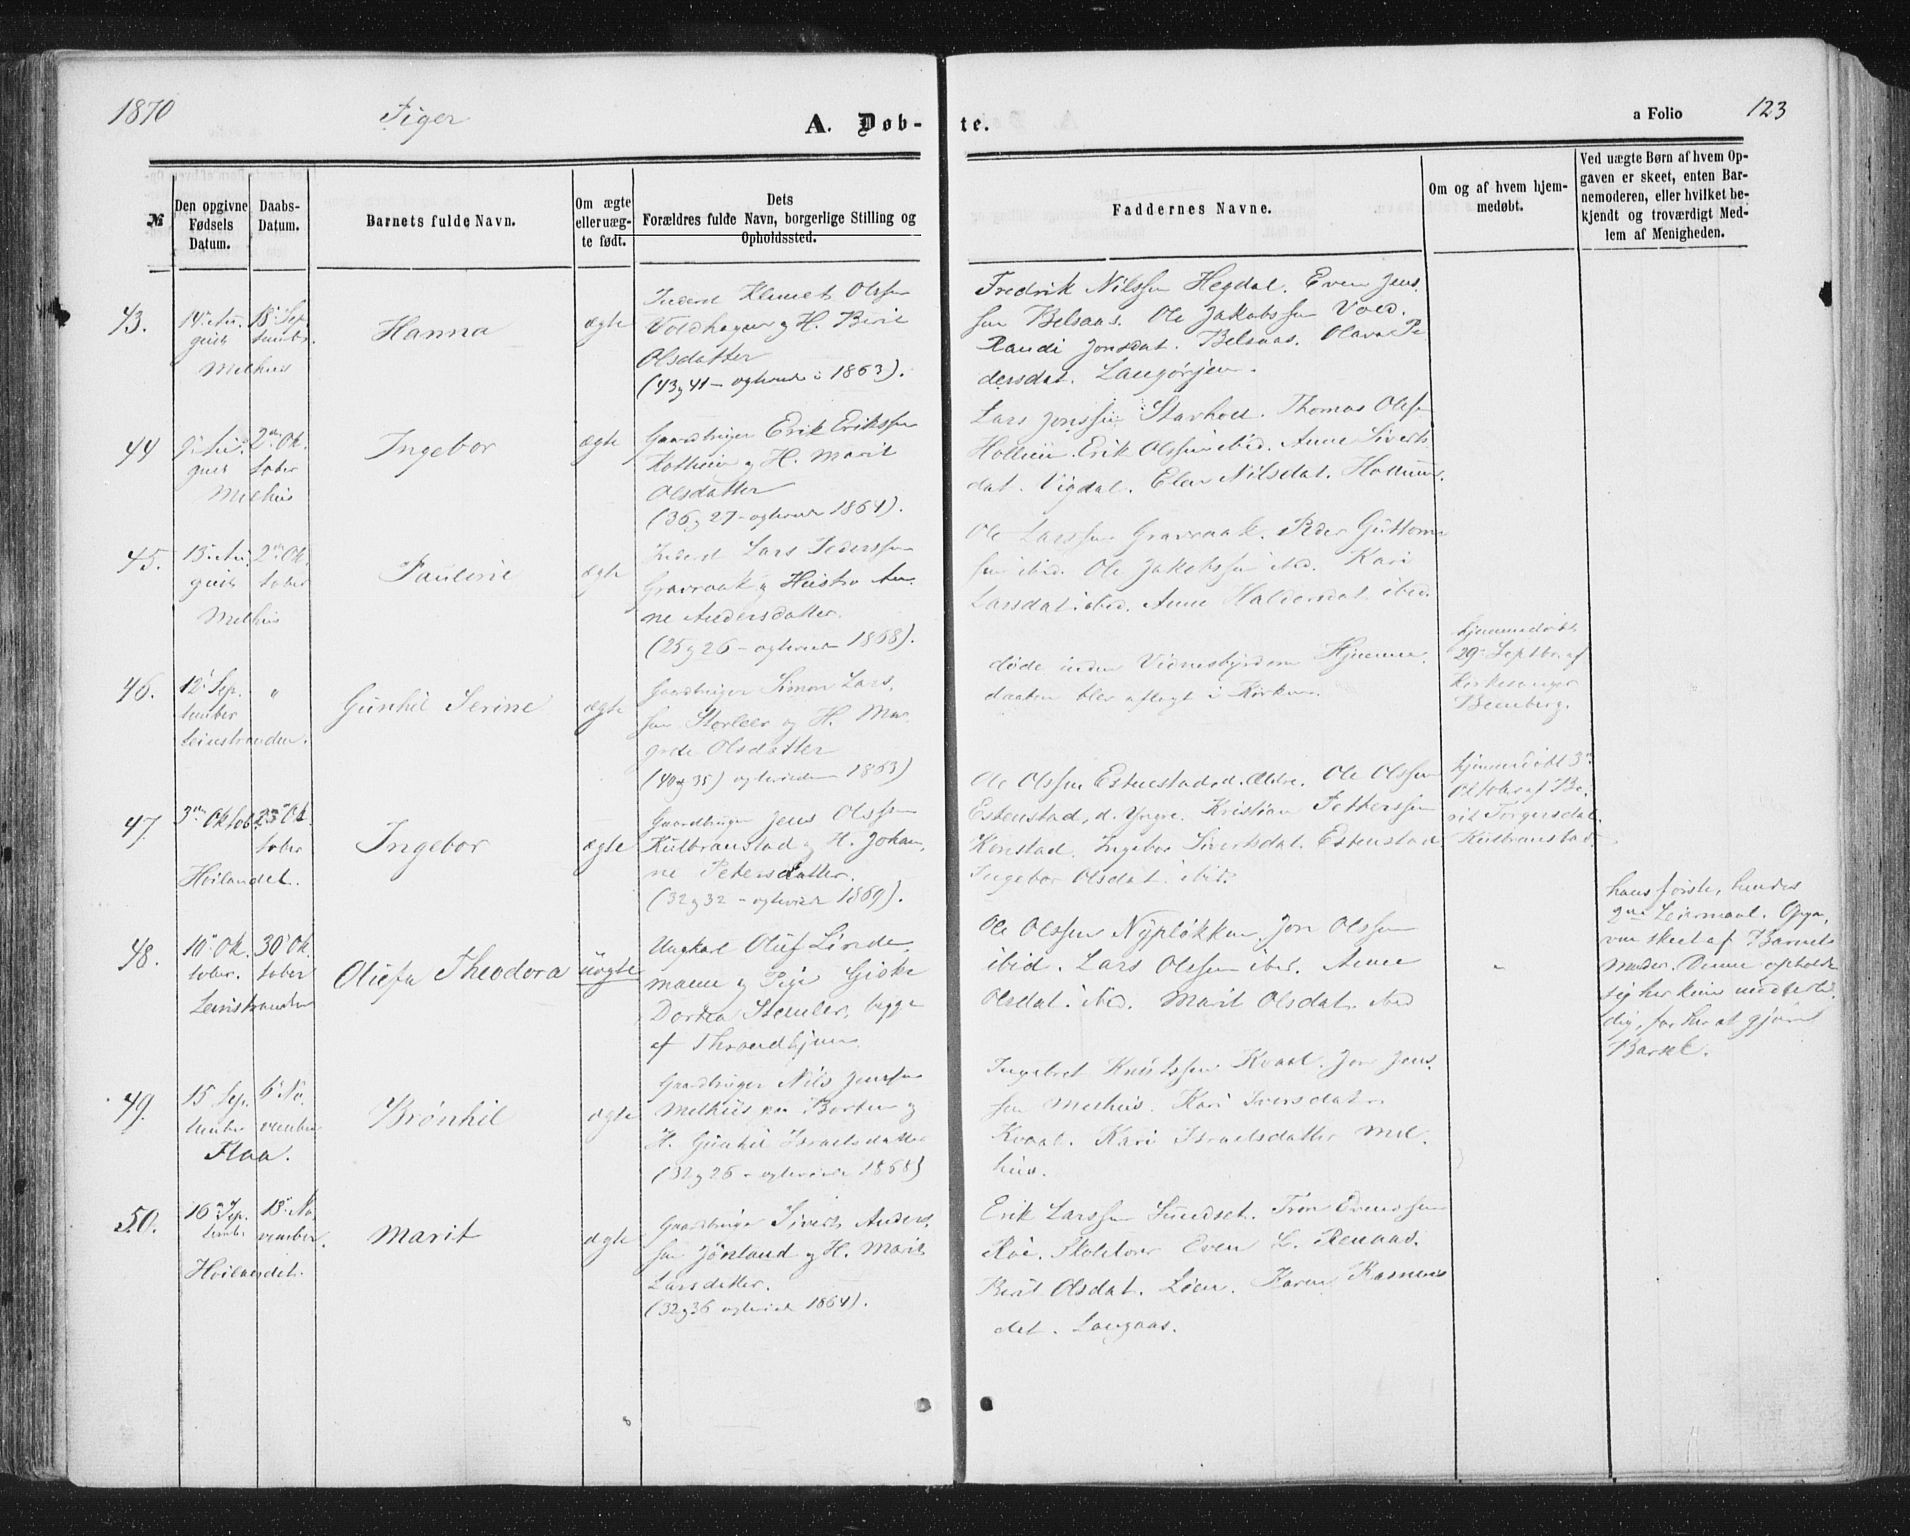 1870
Piger
A. Døb-
te.
a Folio
123
№
Den opgivne
Fødsels
Datum.
Daabs-
Datum.
Barnets fulde Navn.
Om ægte
eller uæg-
te født.
Dets
Forældres fulde Navn, borgerlige Stilling og
Opholdssted.
Faddernes Navne.
Om og af hvem hjem-
medøbt.
Ved uægte Børn af hvem Op-
gaven er skeet, enten Bar-
nemoderen, eller hvilket be-
kjendt og troværdigt Med-
lem af Menigheden.
43.
14 Au-
gust
Melhus
18 Sep
tember.
Hanna
ægte
Inderst Klemet Olssen
Voldhagen og H. Berit
Olsdatter
(43 og 41 - ogteviede i 1863).
Fredrik Nilssen Hegdal. Even Jens-
sen Belsaas. Ole Jakobssen Vold.
Randi Jonsdat. Belsaas. Olava Pe
dersdat. Langørjen.
44
9 Au-
gust
Melhus
2den Ok-
tober
Ingebor
ægte
Gaardbruger Erik Erikssen
og H. Marit
Olsdatter
(36 og 27 - ogteviede 1864).
Lars Jonssen Thomas Olsen
Hollum. Erik Olssen ibid. Anne Siverts
dat. Vigdal. Elen Nilsdat. Hollum.
45.
13 Au-
gust
Melhus
2den Ok-
tober
Pauline
ægte
Inderst Lars Pederssen
Gravraak og Hustro An-
ne Andersdatter.
(25 og 26 - ogteviet 1868).
Ole Larssen Gravraak. Peder Guttorms
sen ibid. Ole Jakobssen ibid. Kari
Larsdat. ibid. Anne Haldorsdat. ibid.
46.
12 Sep-
tember
Leinstranden.
"
Gunhil Serine
ægte
Gaardbruger Simon Lars-
sen Storler og H. Mar
grete Olsdatter
(40 og 35) ogteviede 1863)
døde inden Vidnesbyrdom Hjemme
daaben blev aflagt i Kirken.
hjemmedøbt
29 Septbr. af
Kirkesanger
Bemberg.
47.
3die Oktob.
Høilandet.
23 Ok-
tober
Ingebor
ægte
Gaardbruger Jens Olssen
Kulbranstad og H. Johan-
ne Petersdatter.
(32 og 32 - ogteviede 1869).
Ole Olssen Estenstad, d. Ældre. Ole Olssen
Estenstad, d. Yngre. Kristian Petterssen
Konstad. Ingebor Sivertsdat. Estenstad
Ingebor Olsdat. ibid.
hjemmedøbt 3die
Oktober af Be-
rit Torgersdat.
Kulbranstad.
48.
10 Ok-
tober.
Leinstranden
30 Ok-
tober
Olufa Theodora
uægte
Ungkarl Oluf Linde-
mann og Pige Giske
Dortea Stemler, begge
af Throndhjem.
Ole Olssen Nypløkken. Jon Olssen
ibid. Lars Olssen ibid. Anne
Olsdat. ibid. Marit Olsdat. ibid
"
hans første, hendes
2det Leiermaal. Opga-
ven skeet af Barnets
Moder. Denne opholdt
sig her kun midlerti-
dig, for her at gjøre
Barsel.
49.
15 Sep-
tember
Flaa.
6 No-
vember
Brønhil
ægte
Gaardbruger Nils Jenssen
Melhus nu Borten og
H. Gunhil Israelsdatter
(32 og 26 - ogteviede 1868)
Ingebret Knutssen Kvaal. Jon Jens-
sen Melhus. Kari Iversdat.
Kvaal. Kari Israelsdatter Mel-
hus.
50.
16 Sep-
tember
Høilandet.
13 No-
vember.
Marit
ægte
Gaardbruger Sivert Anders-
sen Jønland og H. Marit
Larsdatter.
(32 og 36 ogteviede 1864).
Erik Larssen Sundset. Tron Evenssen
Roe. Skoletor Even L. Renaas.
Berit Olsdat. Løen. Karen Rasmus
dat. Langaas.